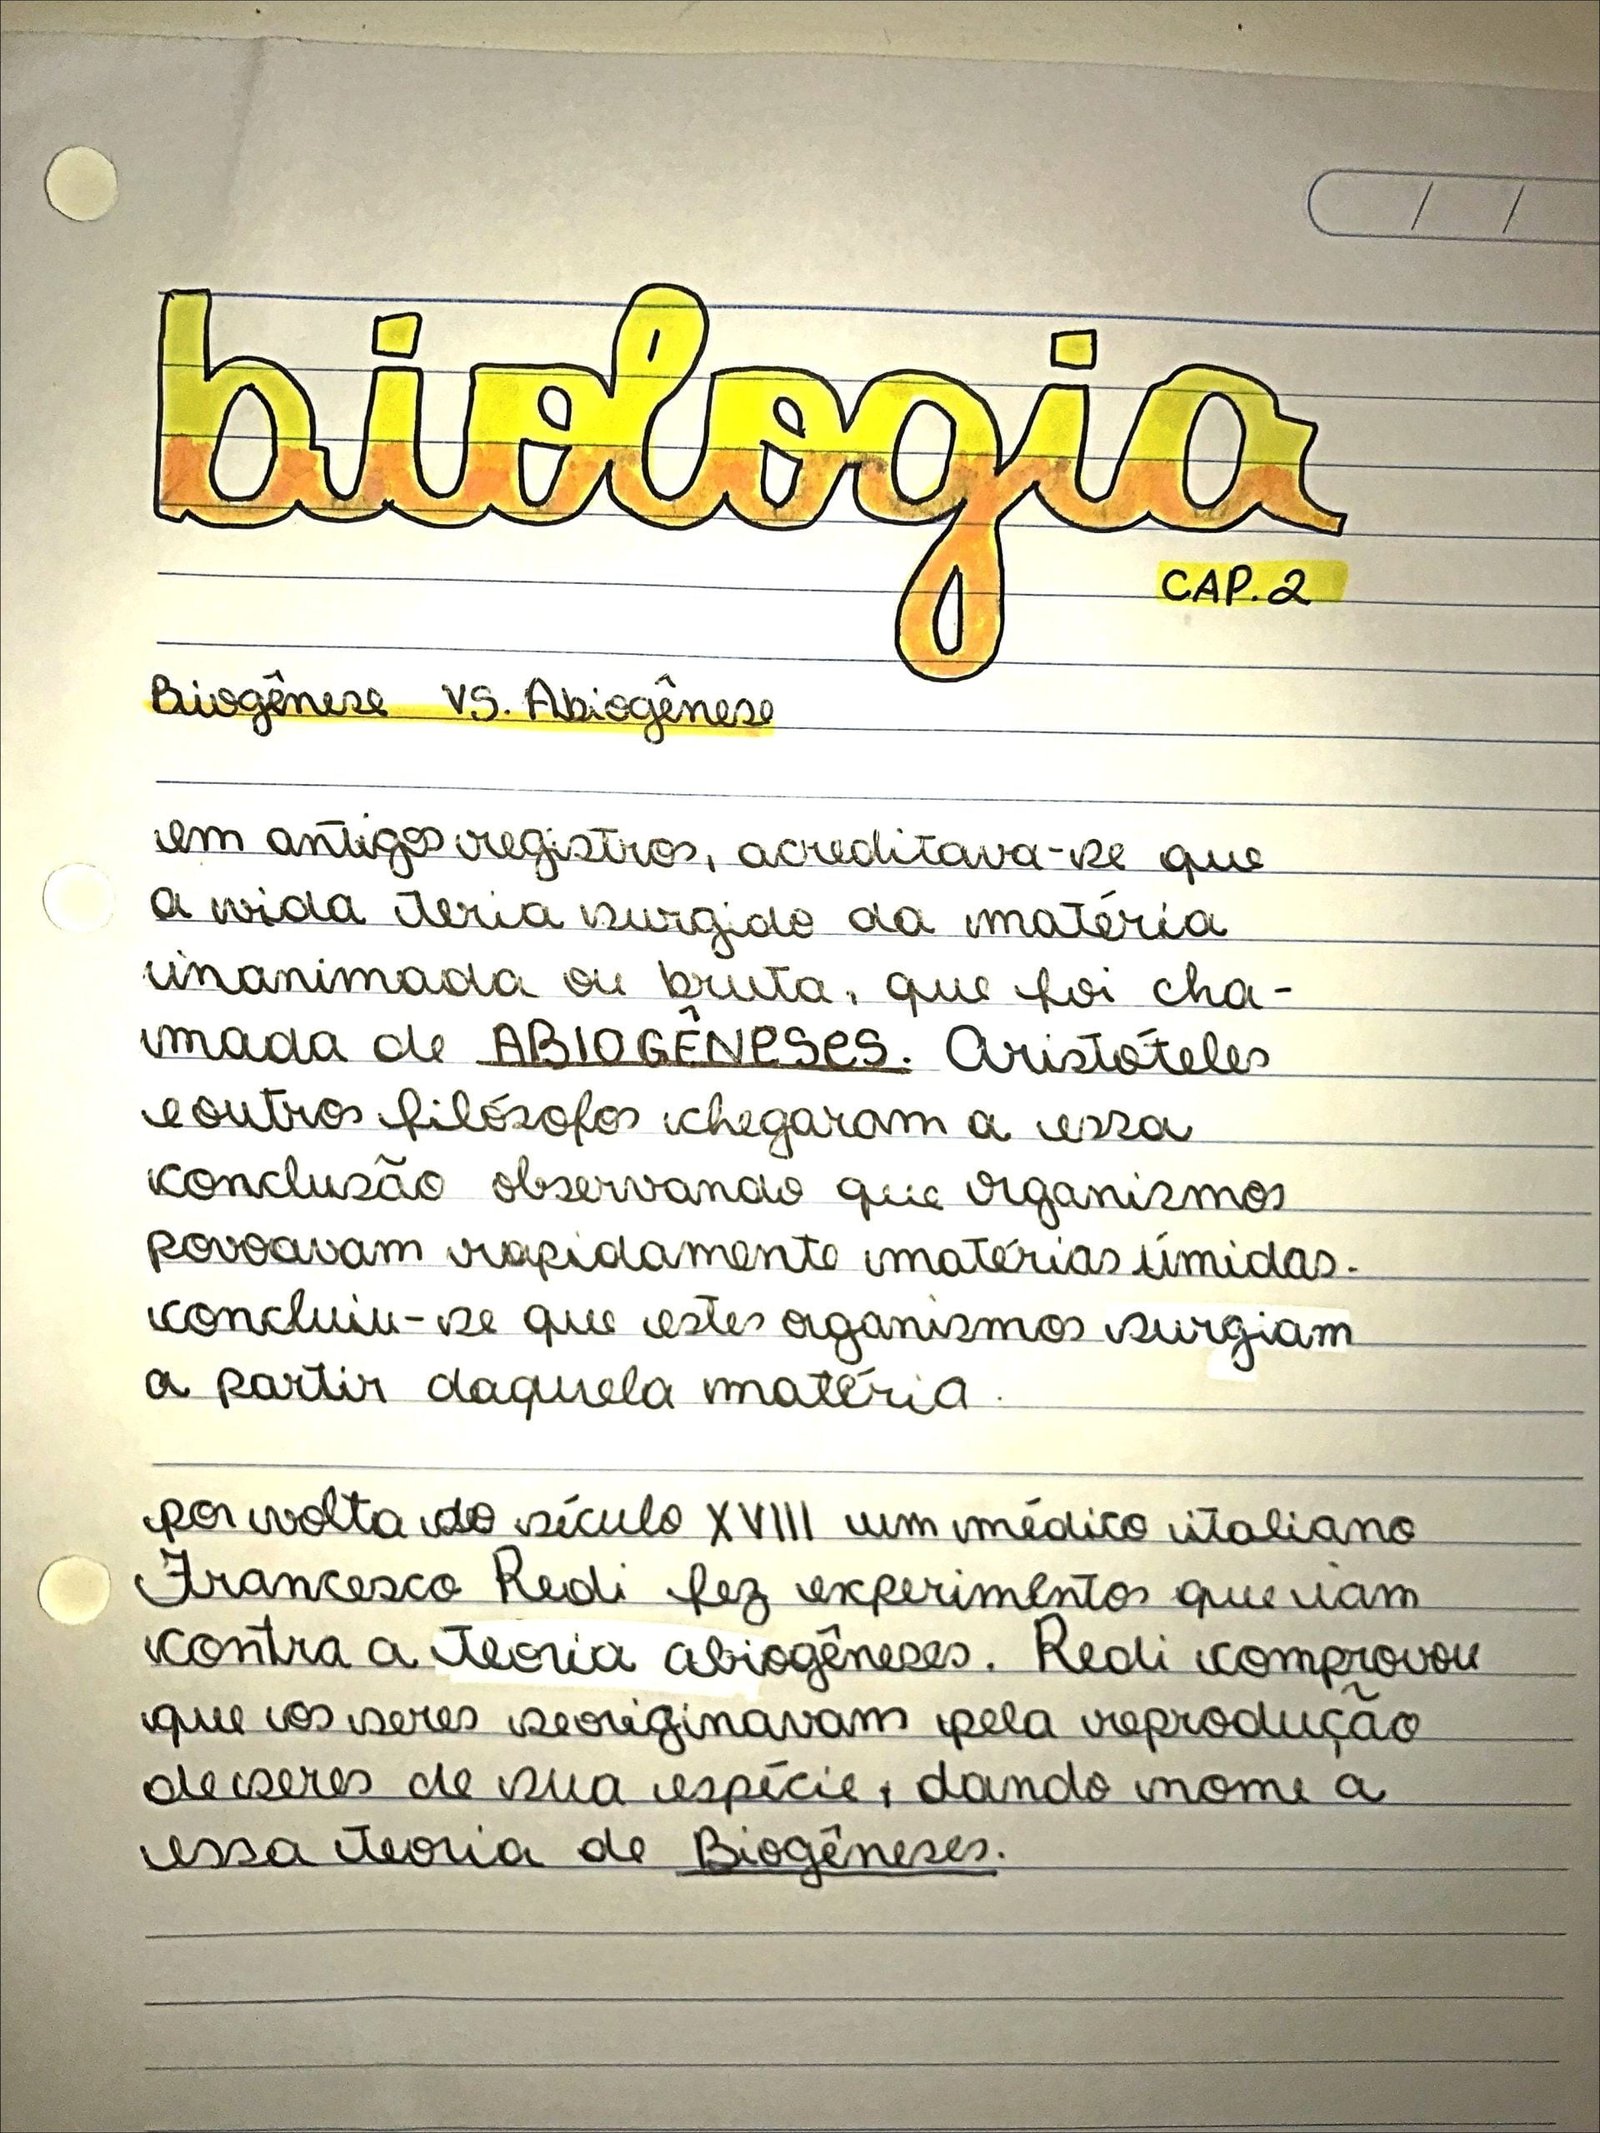 biologia
CAP.2
Biogênese vs. Abiogênese
em antigos registros, acreditava-se que
a vida teria surgido da matéria
inanimada ou bruta, que foi cha-
mada de ABIOGÊNESES. Aristóteles
e outros filósofos chegaram a essa
conclusão observando que organismos
povoavam rapidamente matérias úmidas.
concluiu-se que estes organismos surgiam
a partir daquela matéria.
por volta do século XVIII um médico italiano
Francesco Redi fez experimentos que iam
contra a teoria abiogêneses. Redi comprovou
que os seres se originavam pela reprodução
de seres de sua espécie, dando nome a
essa teoria de Biogêneses.